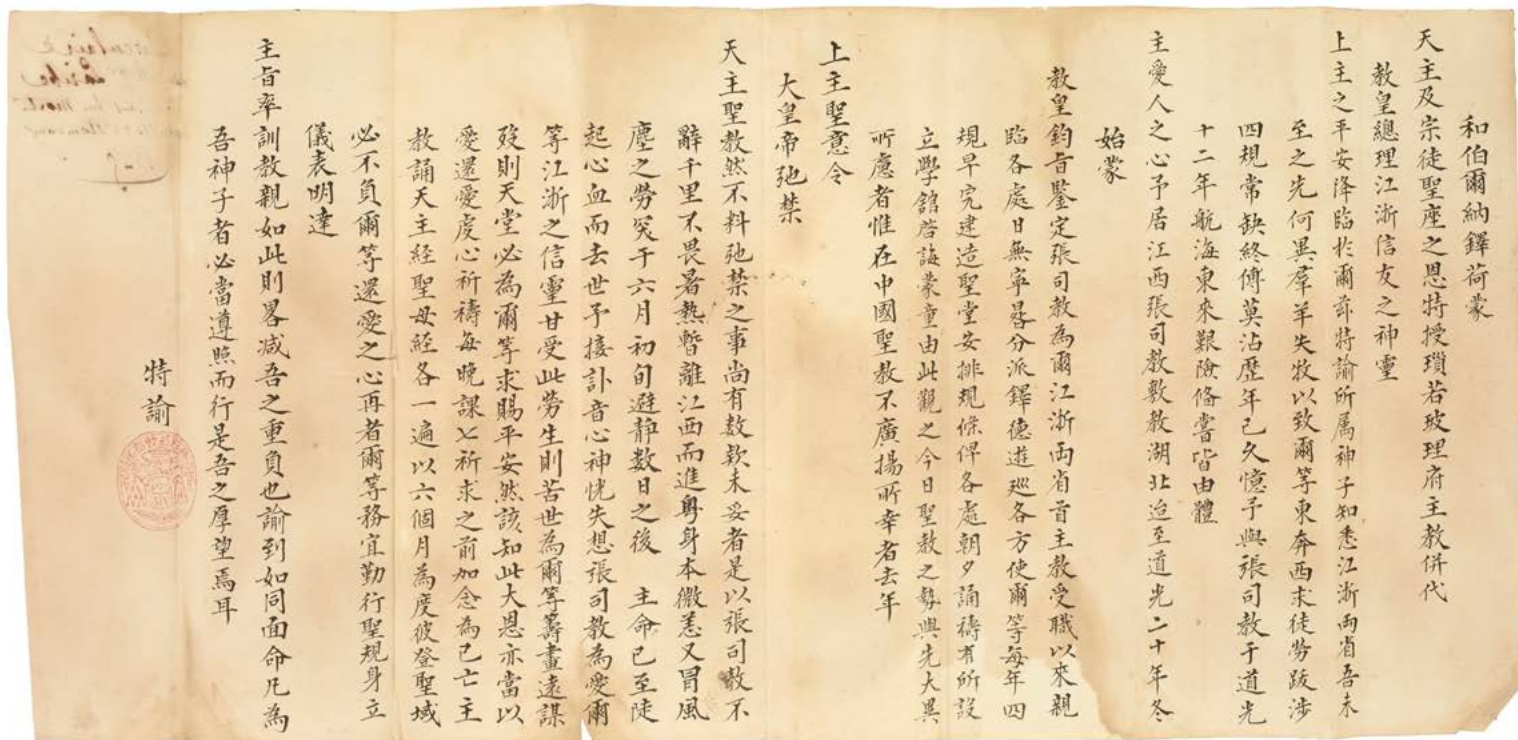 和伯爾納鐸荷蒙
天主及宗徒聖座之恩特授瑣若玻理府主教併代
教皇總理江浙信友之神靈
上主之平安降臨於爾茲特諭所屬神子知悉江浙兩省吾未
至之先何異羣羊失牧以致爾等東奔西求徒勞跋涉
四規常缺終傅莫沾歷年已久憶予與張司教于道光
十二年航海東來艱險俻嘗皆由體
主愛人之心予居江西張司教敷教湖北迨至道光二十年冬
始蒙
教皇鈞旨鑒定張司教為爾江浙両省首主教受職以來親
臨各處日無寧晷分派鐸德遊廵各方使爾等每年四
規早完建造聖堂安排規條俾各處朝夕誦禱有所設
立學舘啓誨蒙童由此觀之今日聖教之勢與先大異
所慮者惟在中國聖教不廣揚所幸者去年
上主聖意令
大皇帝弛禁
天主聖教然不料弛禁之事尚有数欵未妥者是以張司教不
辭千里不畏暑熱暫離江西而進粵身本微恙又冒風
塵之勞突于六月初旬避靜数日之後 主命已至陡
起心血而去世予接訃音心神恍失想張司教為愛爾
等江浙之信靈甘受此勞生則苦世為爾等籌畫遠謀
歿則天堂必為爾等求賜平安然該知此大恩亦當以
愛還愛虔心祈禱每晚課七祈求之前加念為已亡主
教誦天主經聖母經各一遍以六個月為度彼登聖域
必不負爾等還愛之心再者爾等務宜勤行聖規身立
儀表明達
主旨率訓教親如此則畧減吾之重負也諭到如同面命凡為
吾神子者必當遵照而行是吾之厚望焉耳
特諭